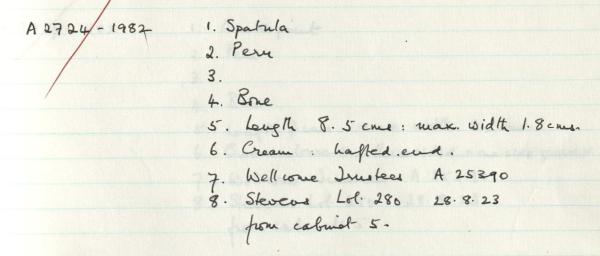 A 2724-1982 1. Spatula
2. Peru
3.
4. Bone
5. Length 8.5 cms: max. width 1.8 cms.
6. Cream. hafted end.
7. Wellcome Trustees A 25390
8. Stevens Lot. 280 28.8.23
from cabinet 5.